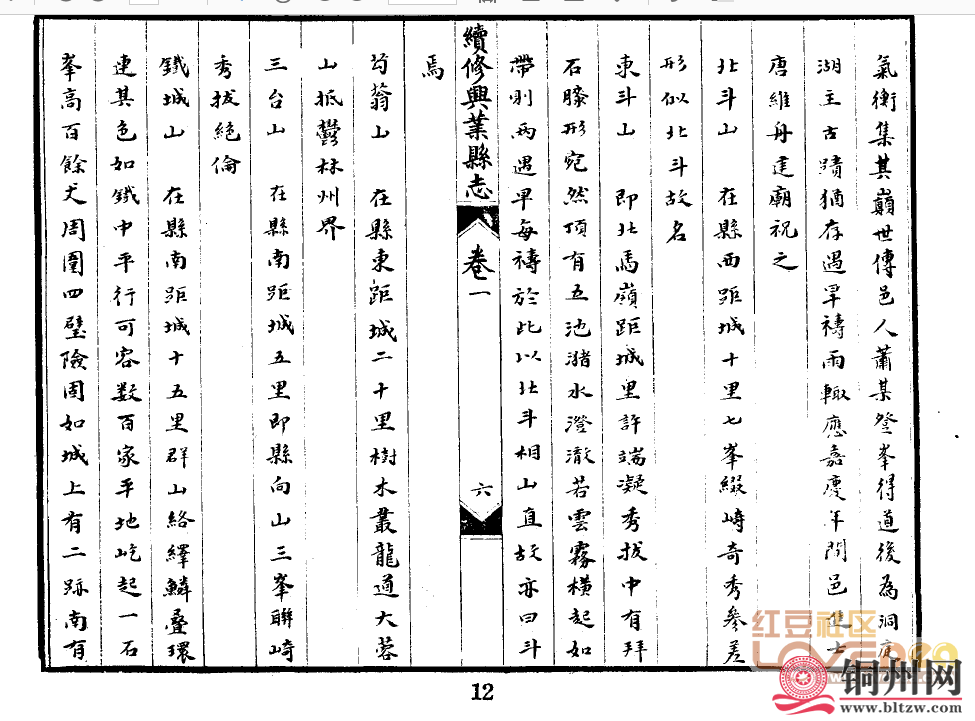 氣衝集其巔世傳邑人蕭某登峯得道後為洞庭
湖主古蹟猶存遇旱禱雨輙應嘉慶年間邑進士
唐維舟建廟祝之
北斗山 在縣西距城十里七峯綴崎奇秀參差
形似北斗故名
東斗山 即北馬嶺距城里許端凝秀拔中有拜
石膝形宛然頂有五池潴水澄澈若雲霧橫起如
帶則雨遇旱每禱於此以北斗相山直故亦曰斗
焉
續修興業縣志 卷一 六
芶蓊山 在縣東距城二十里樹木叢龍道大蓉
山抵鬱林州界
三台山 在縣南距城五里即縣向山三峯聯崎
秀拔絕倫
鐵城山 在縣南距城十五里群山絡繹鱗疊環
連其色如鐵中平行可容数百家平地屹起一石
峯高百餘丈周圍四壁險固如城上有二跡南有
12
红豆社区
铜州网
www.bltzw.com